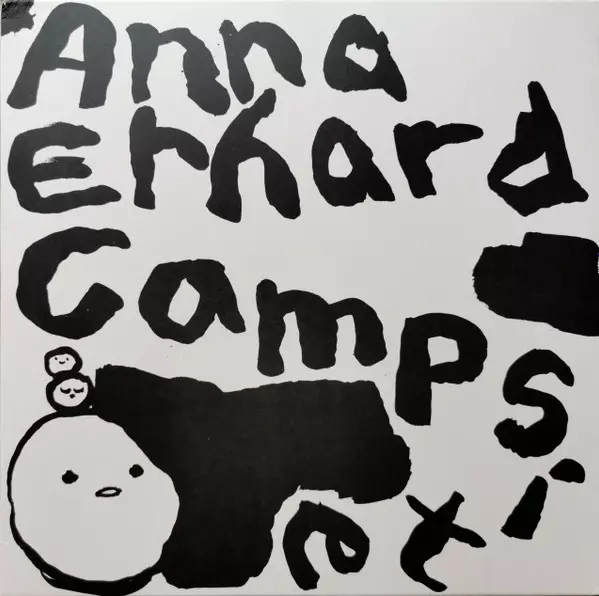 Anna
Erhard
Campsite